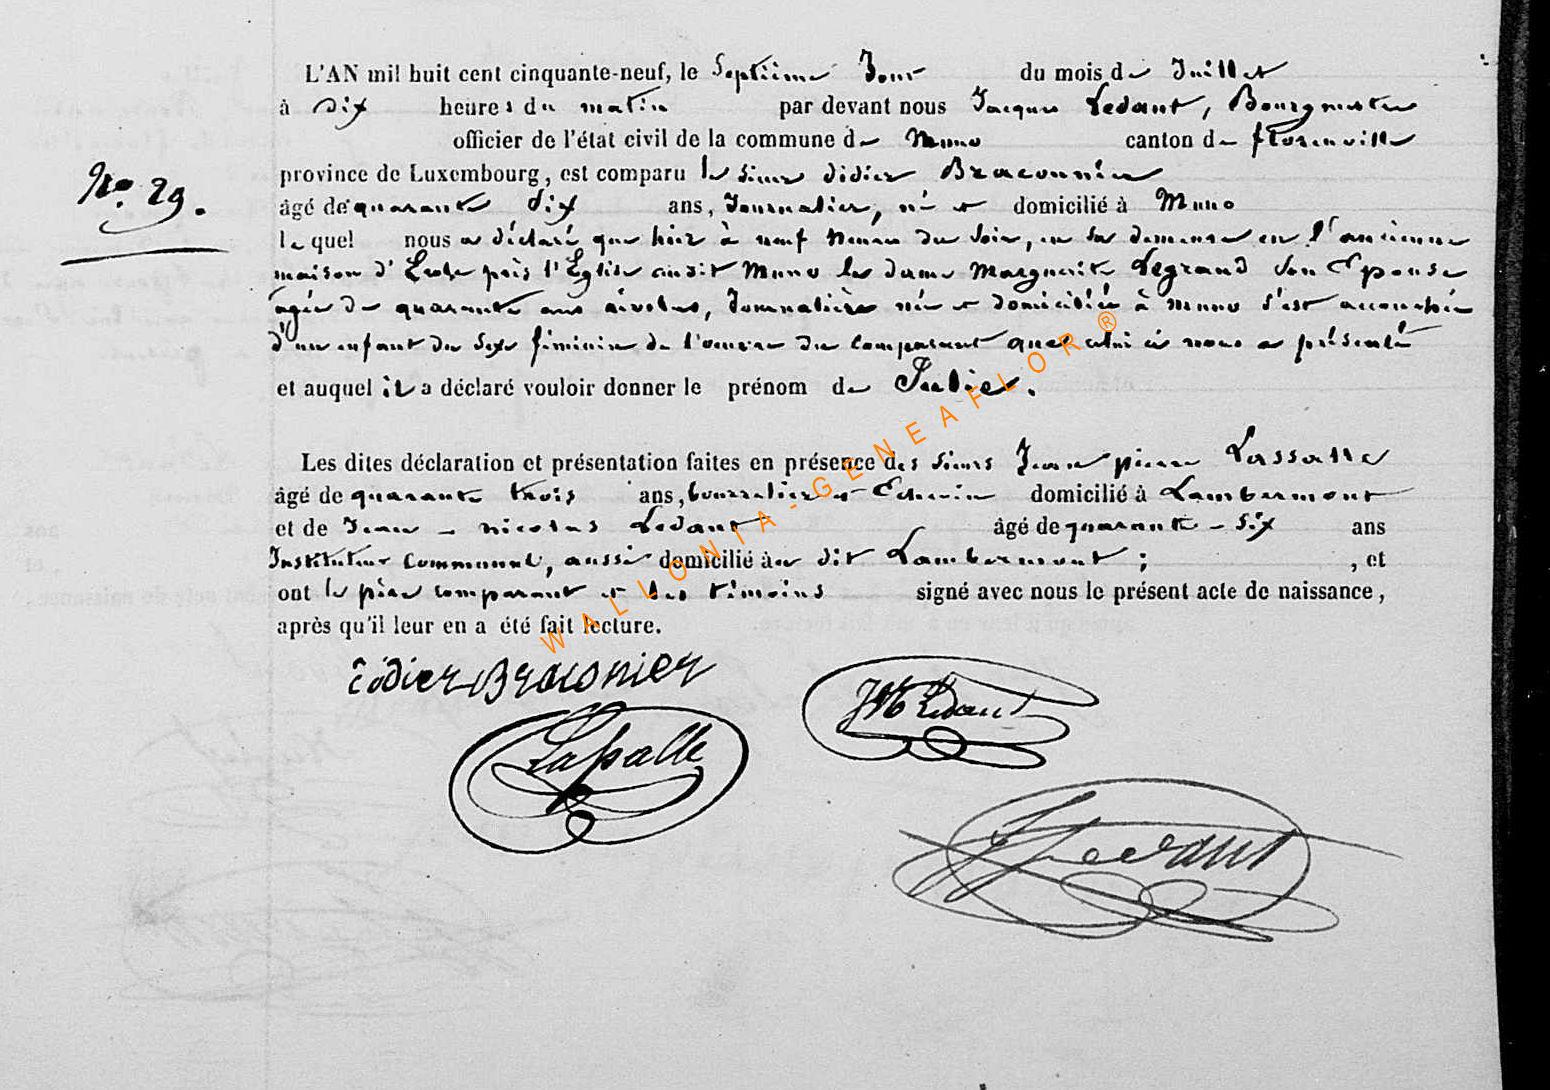 L'AN mil huit cent cinquante-neuf, le Septième Jour du mois de Juillet
à dix heures du matin par devant nous Jacques Ledant, Bourgmestre
officier de l'état civil de la commune de Muno canton de florenville
No. 29.
province de Luxembourg, est comparu le sieur didier Braconnier
âgé de quarante dix ans, Journalier, né et domicilié à Muno
lequel nous a déclaré que hier à neuf heures du soir, en sa demeure en l'ancienne
maison d'Ecole près l'Eglise audit Muno la dame Marguerite Legrand son Epouse
agée de quarante ans révolus, Journalière née et domiciliée à muno s'est accouchée
d'un enfant du sexe féminin de l'oeuvre du comparant que celui ci nous a présenté
et auquel il a déclaré vouloir donner le prénom de Julie.
Les dites déclaration et présentation faites en présence des sieurs Jean pierre Lassalle
âgé de quarante trois ans, bourrelier et Echevin domicilié à Lambermont
et de Jean - nicolas Ledant âgé de quarante - six ans
Instituteur Communal, aussi domicilié au dit Lambermont ; , et
ont le père comparant et les témoins signé avec nous le présent acte de naissance,
après qu'il leur en a été fait lecture.
WALLONIA-GENEAFLOR®
didier Braconier
JN Ledant
Lassalle
J Ledant